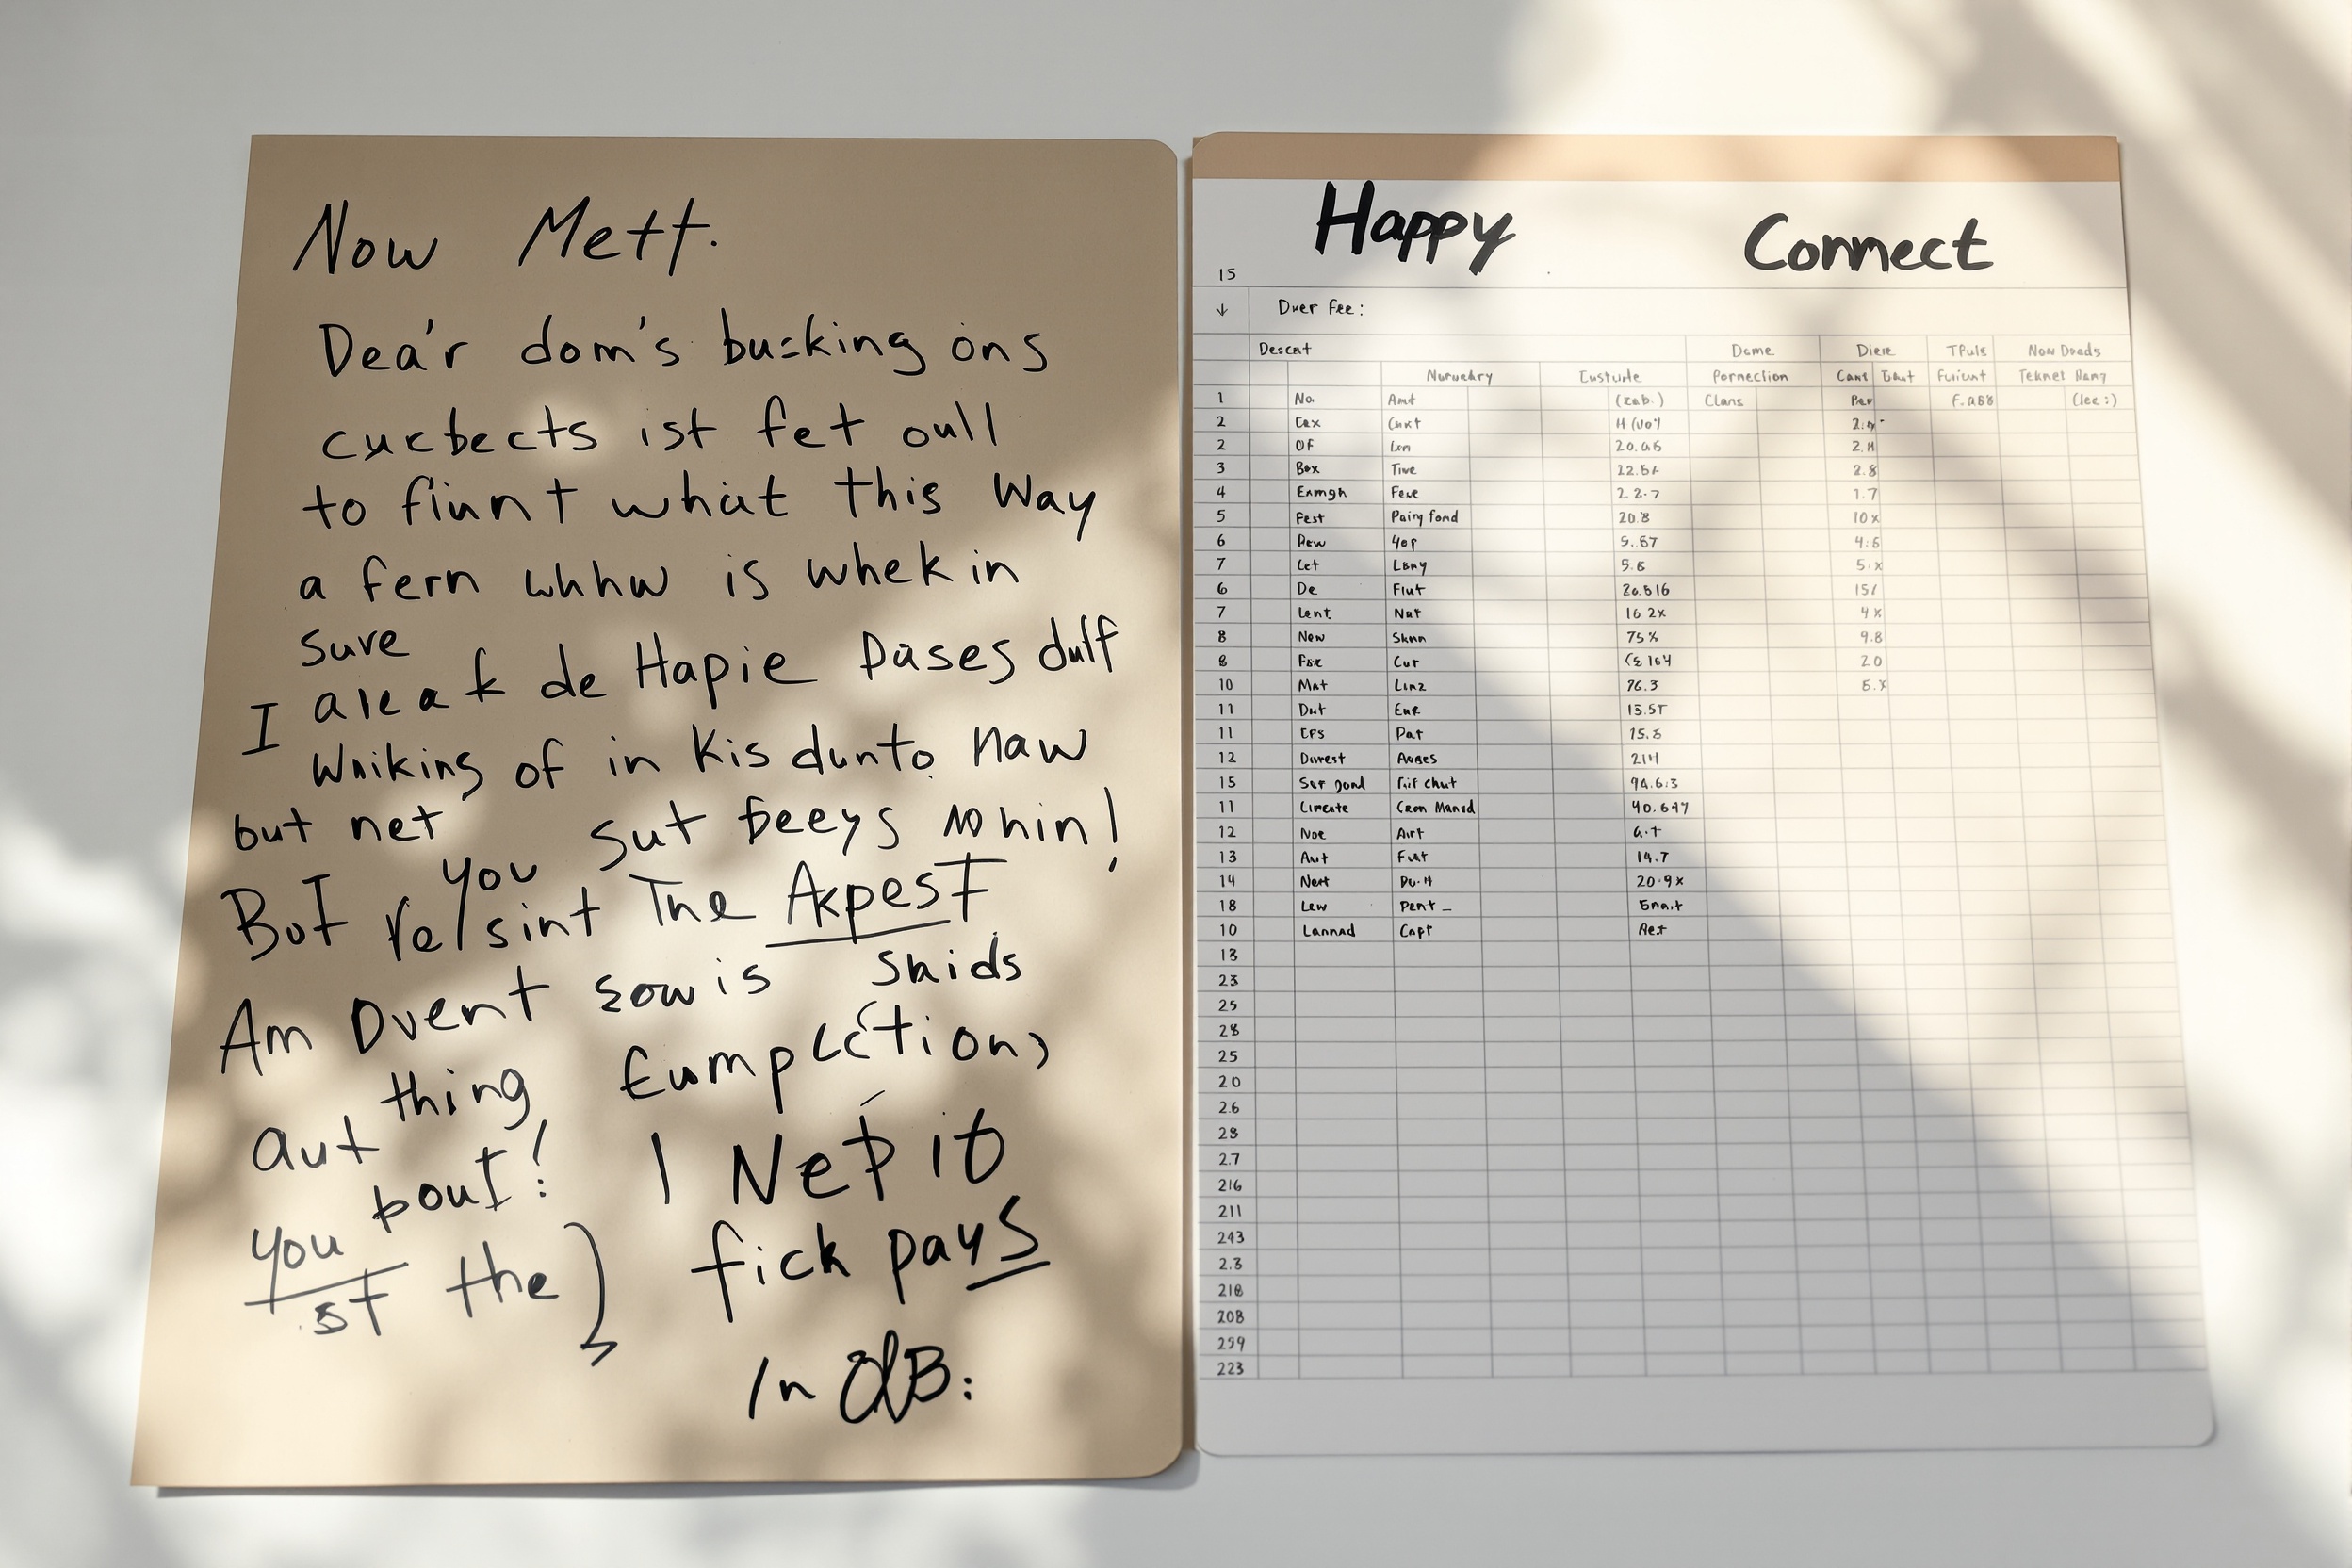 Now Mett.
Dea'r dom's busking ons
cucbects ist fet oull
to fiunt what this Way
a fern whhw is whek in
sure
I aleak de Hapie Dases dulf
Wniking of in Kis dunto naw
but net you sut beeys nohin!
BoT re/sint The AkpesT
Am Dvent sow is Snids
aut thing Eumplction,
you bout! I Net it
.sT the fick pays
In
Happy Connect
15
↓ Duer Fee:
Descnt Dome Diere TPuls Now Doads
Norvedry Custurle Pornection Cant Furiunt Teknet Hang
1 No. Amt (zab.) Clans Per F.a88 (lee:)
2 Cax Cnxt
2 OF Len 20.06 2.H
3 Box Tive 22.5/ 2.8
4 Exmgh Fexe 2 2.7 1.7
5 Fest Painy fond 20.8 10x
6 Rew 4op 5.67 4:6
7 Cet LBny 5.6 5.x
6 De Flut 20.516 15/
7 Lent. Nat 16 2x 4x
8 New Sknn 75% 9.8
8 Fax Cut 20
10 Mat Linz 76.3 6.x
11 Dut Ene 15.5T
11 Eps Pat 15.8
12 Dinrest Aages 21H
15 Ser pond Fnif Chut 94.6:3
11 Limeate Cron Mansd 40.647
12 Noe Airt 6.T
13 Aut Fut 14.7
14 Nert Du.H 20.9x
18 Lew Pent_ Enait
10 Lannad Copt Aet
13
23
25
28
25
20
2.6
28
2.7
216
211
243
2.3
218
208
259
223